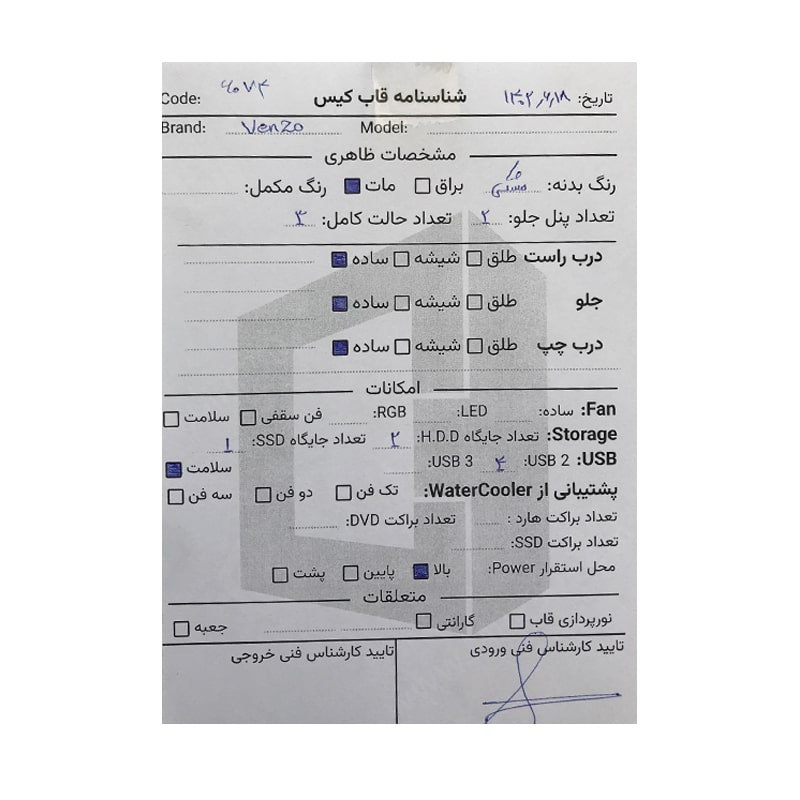 تاریخ: ۱۴۰۲,۶,۱۸ شناسنامه قاب کیس Code: ۹۰۷۴
Brand: Venzo Model:
مشخصات ظاهری
رنگ بدنه: مشکی براق مات رنگ مکمل:
تعداد پنل جلو: ۲ تعداد حالت کامل: ۴
درب راست طلق شیشه ساده
جلو طلق شیشه ساده
درب چپ طلق شیشه ساده
امکانات
Fan: ساده: LED: RGB: فن سقفی سلامت
Storage: تعداد جایگاه H.D.D: ۲ تعداد جایگاه SSD: ۱
USB: USB 2: ۴ USB 3: سلامت
پشتیبانی از WaterCooler: تک فن دو فن سه فن
تعداد براکت هارد : تعداد براکت DVD:
تعداد براکت SSD:
محل استقرار Power: بالا پایین پشت
متعلقات
نورپردازی قاب گارانتی جعبه
تایید کارشناس فنی ورودی تایید کارشناس فنی خروجی